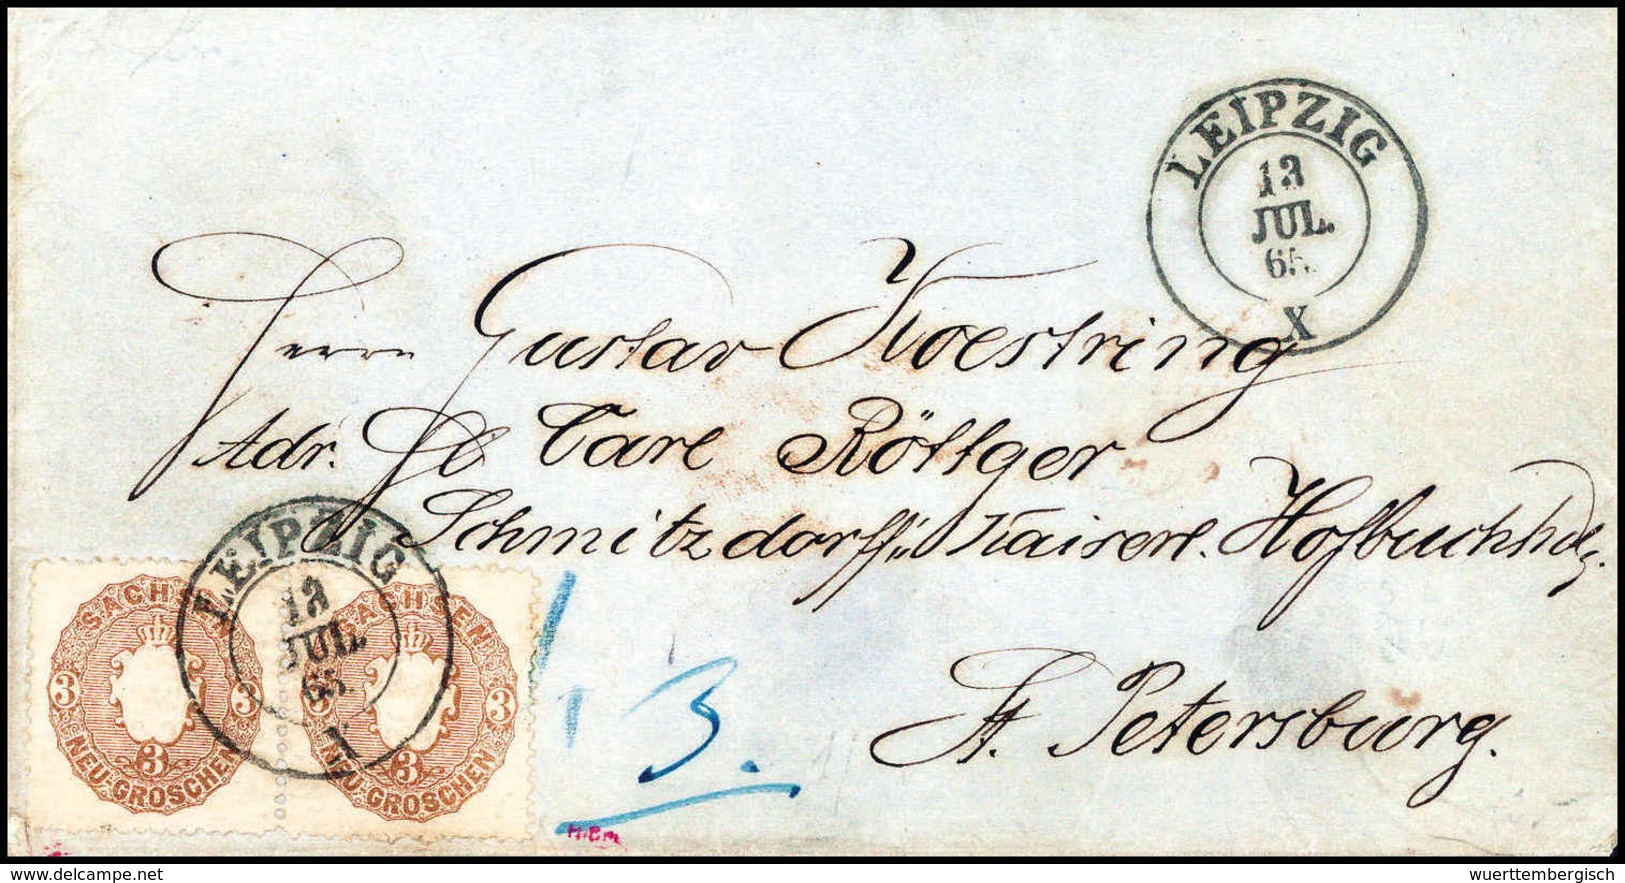 LEIPZIG
13
JUL.
65.
X
Herrn Gustav Koestring
Adr. H Carl Röttger
Schmitzdorff'" Kaiserl. Hofbuchhdl.
St. Petersburg.
LEIPZIG
13
JUL.
65.
SACHSEN
3 3
3
NEU-GROSCHEN
SACHSEN
3 3
3
NEU-GROSCHEN
3.
www.delcampe.net
wuerttembergisch